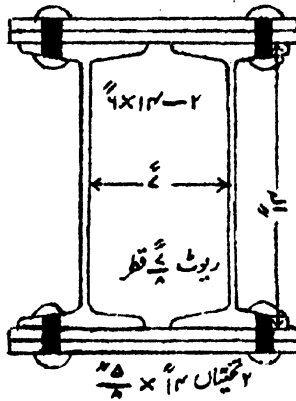 ۲—۱۴×۶″
۷″
۱۴″
ریوٹ ۷/۸″ قطر
۲ تختیاں ۱۴″ × ۵/۸″